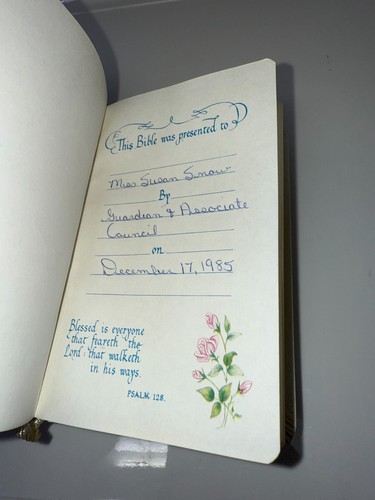 This Bible was presented to
Miss Susan Snow
By
Guardian & Associate
Council
on
December 17, 1985
Blessed is everyone
that feareth the
Lord; that walketh
in his ways.
PSALM 128.